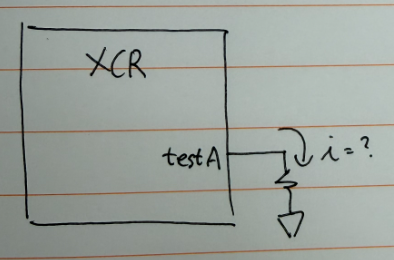 XCR
testA i=?